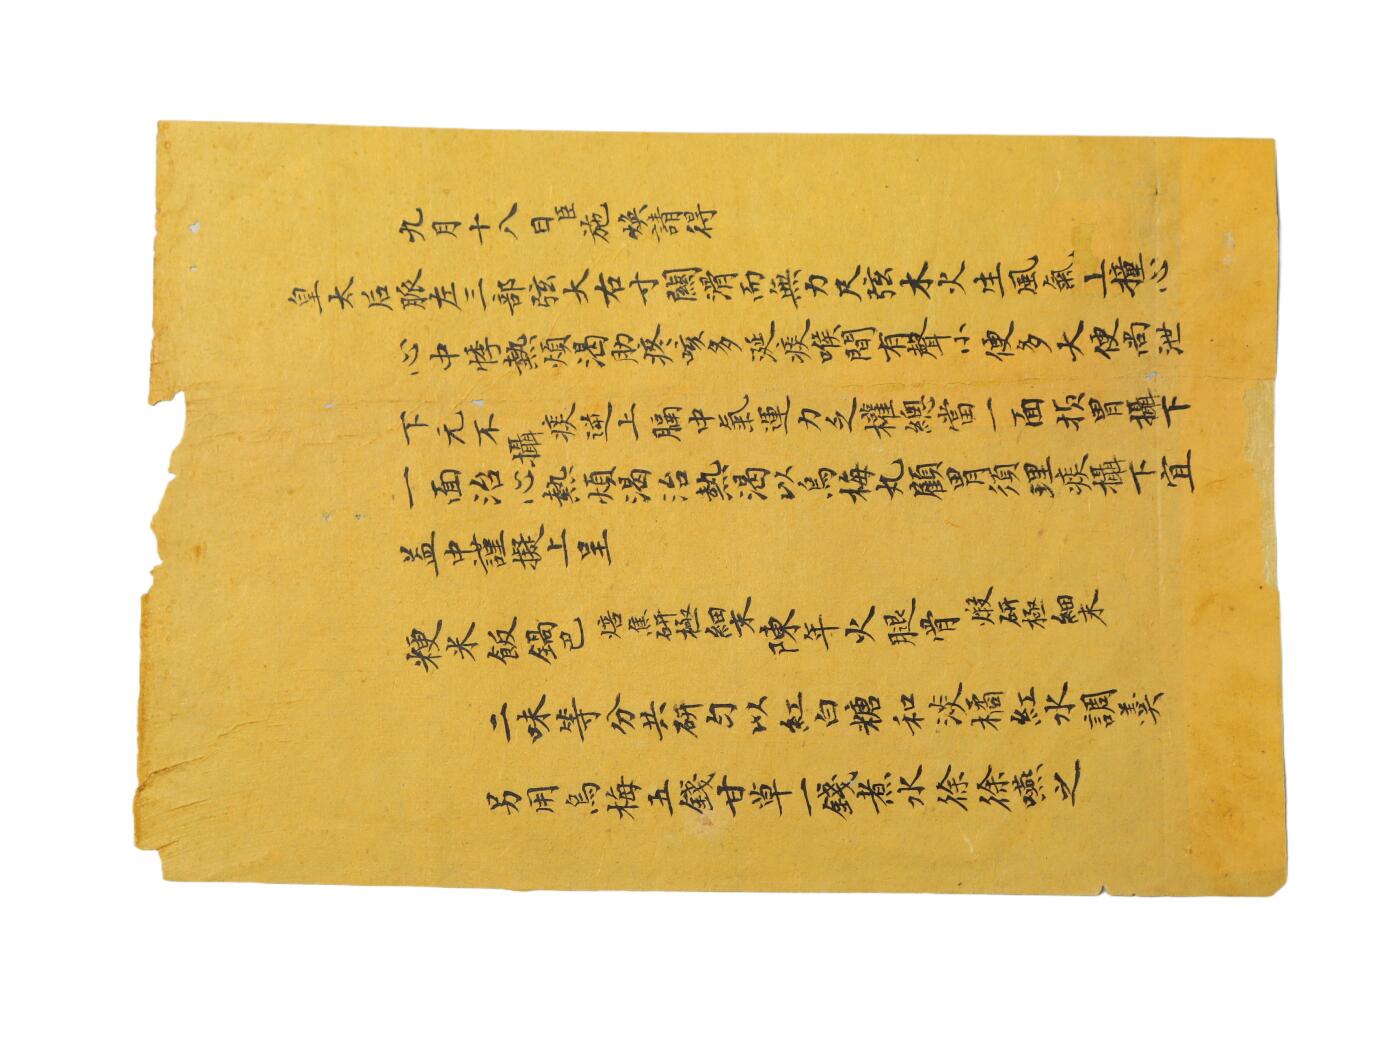 九月十八日臣施煥請得
皇太后脈左三部弦大右寸關滑而無力尺弦木火生風氣上撞心
心中悸熱煩渴肋疼咳多涎痰喉間有聲小便多大便尚泄
下元不攝痰逆上膈中氣運力乏權總當一面扶胃攝下
一面治心熱煩渴治熱渴以烏梅丸顧胃須理痰攝下宜
益中謹擬上呈
粳米飯鍋巴 焙焦研極細末 陳年火腿骨 煅研極細末
二味等分共研勻以紅白糖和淡橘紅水調羹
另用烏梅五錢甘草一錢煮水徐徐嚥之